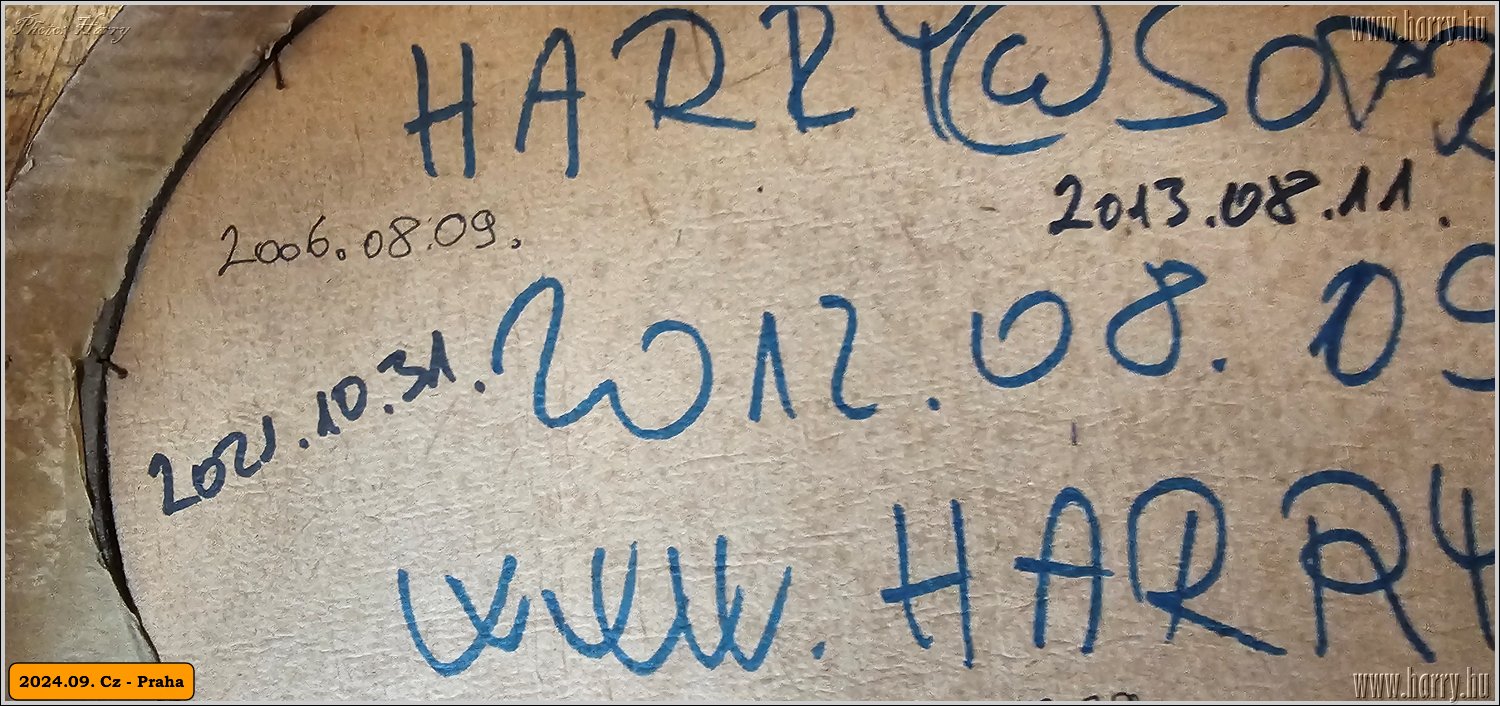 Photos Harry
www.harry.hu
HARRY@SOPR
2006.08.09.
2013.08.11.
2012.08.09
2021.10.31.
www.HARRY
2024.09. Cz - Praha
www.harry.hu